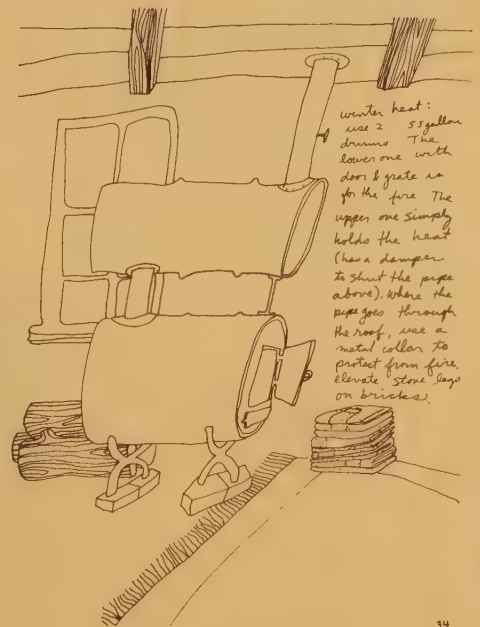 winter heat:
use 2 55 gallon
drums The
lower one with
door & grate is
for the fire The
upper one simply
holds the heat
(has a damper
to shut the pipe
above). Where the
pipe goes through
the roof, use a
metal collar to
protect from fire.
elevate stove legs
on bricks.
34